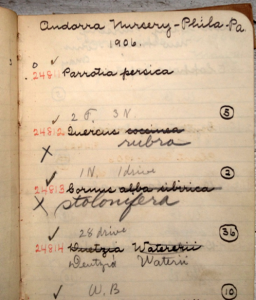 Andorra Nursery - Phila - Pa.
1906.
24811 Parrotia persica
2 F. 3 N
5
24812 Quercus coccinea
rubra
1 N. 1 drive
2
24813 Cornus alba sibirica
stolonifera
28 drive
36
24814 Deutzia Watererii
Deutzia Waterii
W. B
10